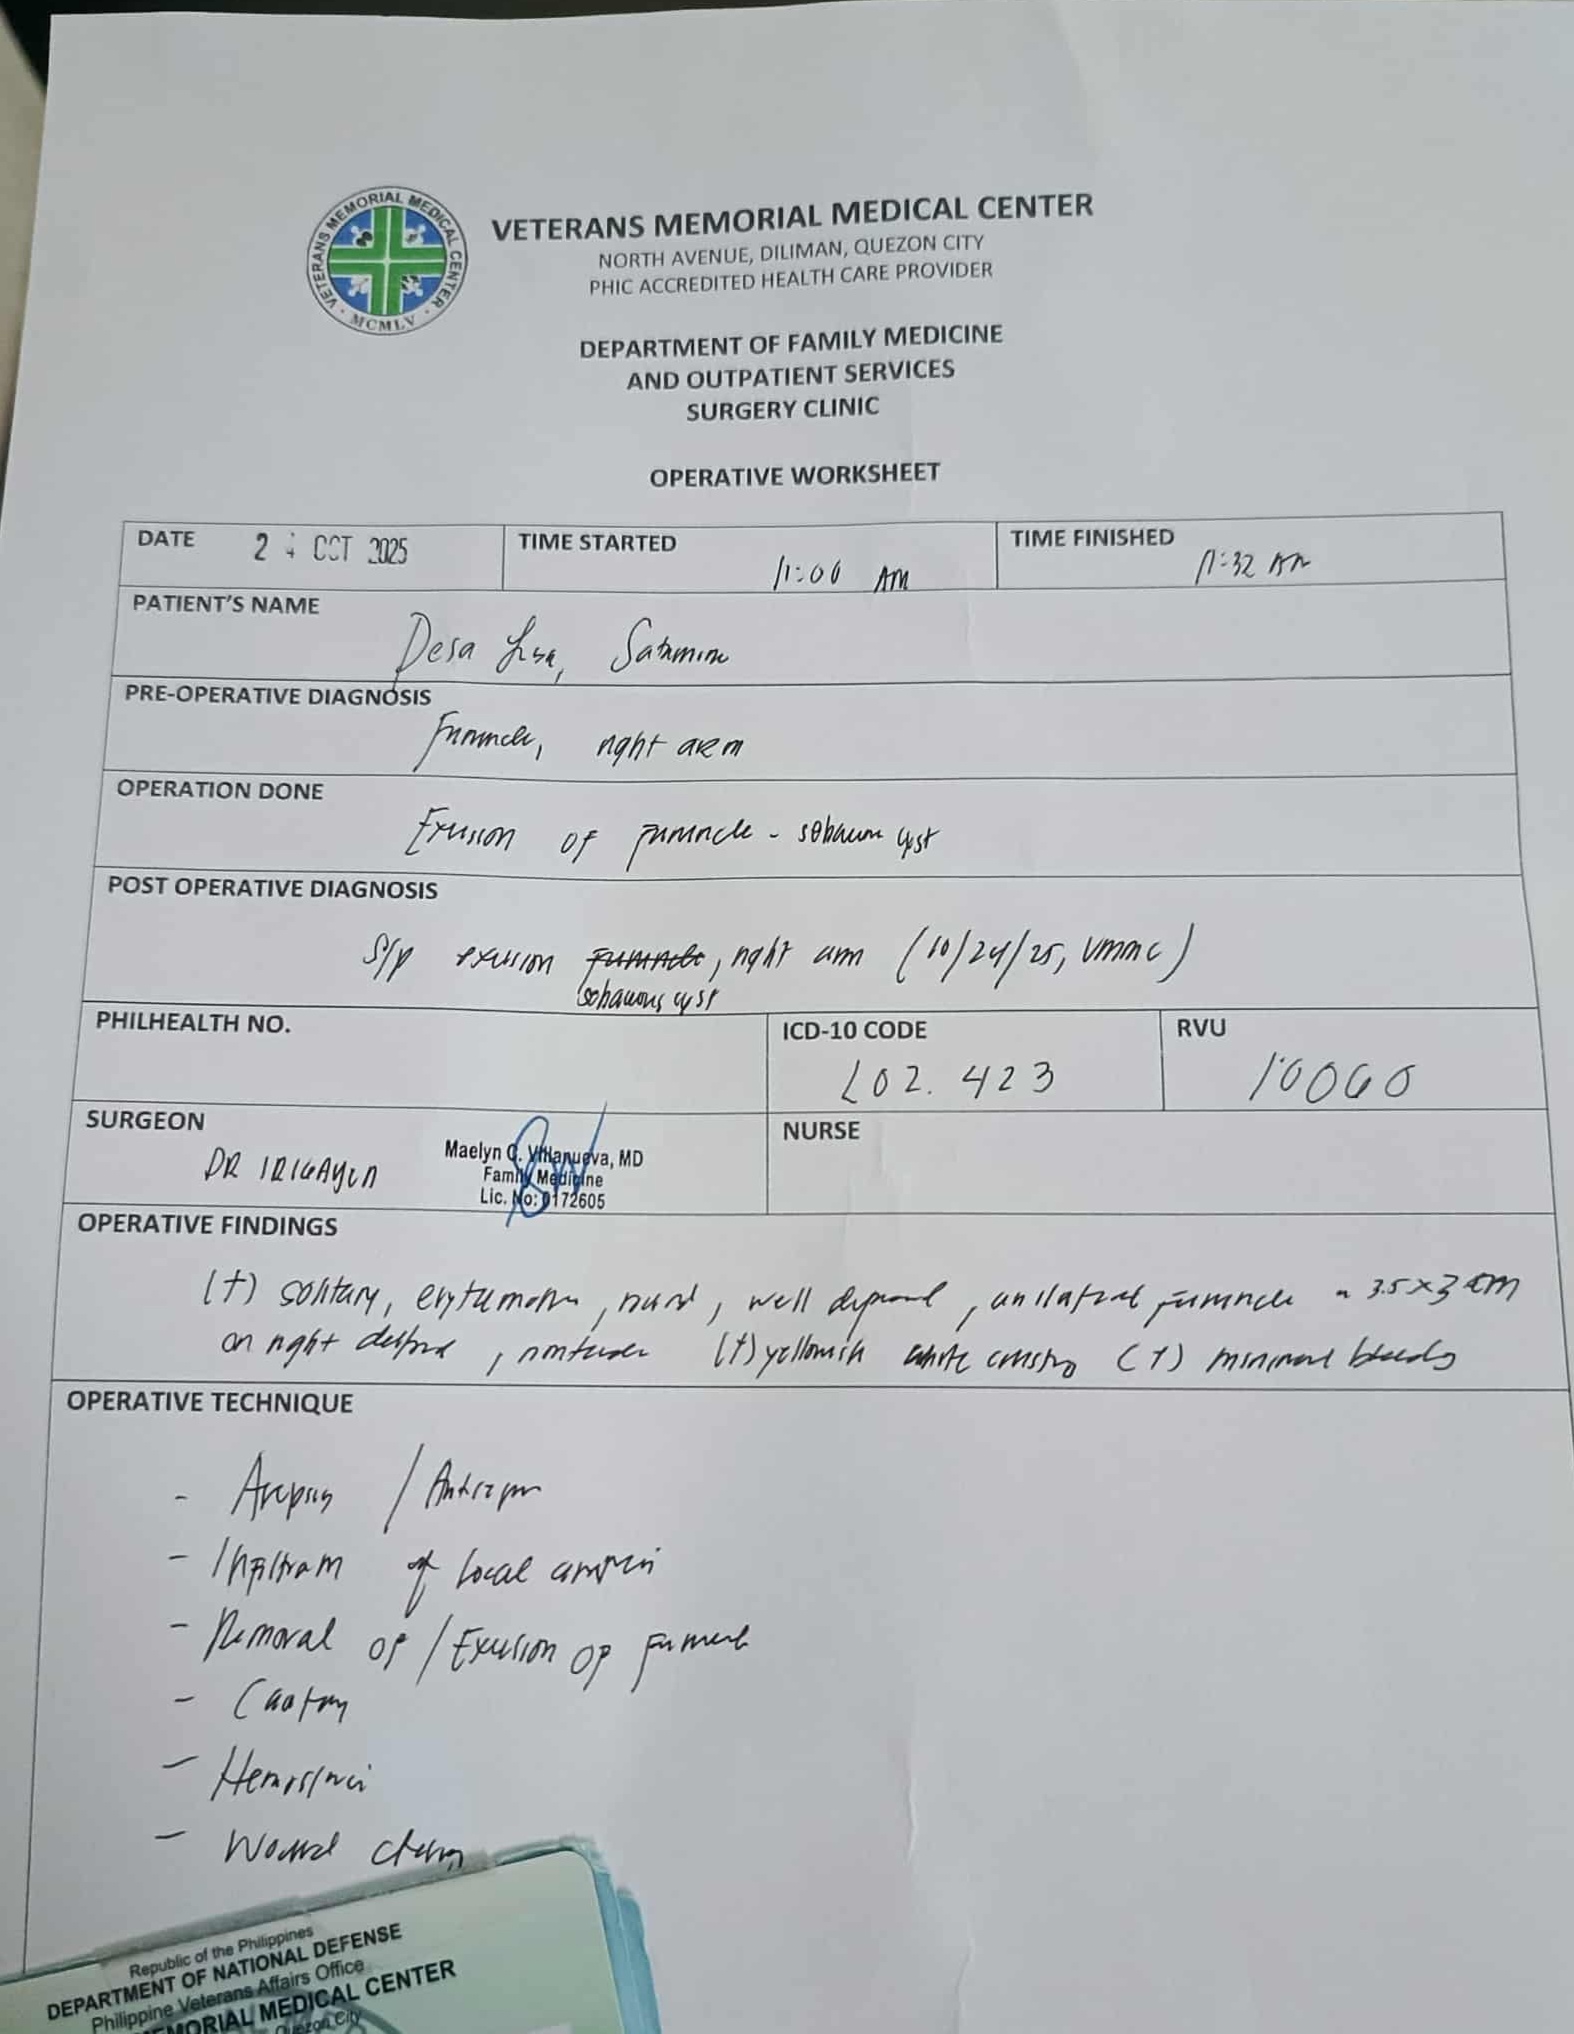 VETERANS MEMORIAL MEDICAL CENTER
MCMLV
VETERANS MEMORIAL MEDICAL CENTER
NORTH AVENUE, DILIMAN, QUEZON CITY
PHIC ACCREDITED HEALTH CARE PROVIDER
DEPARTMENT OF FAMILY MEDICINE
AND OUTPATIENT SERVICES
SURGERY CLINIC
OPERATIVE WORKSHEET
DATE 24 OCT 2025 TIME STARTED 11:00 AM TIME FINISHED 11:32 AM
PATIENT'S NAME
Desa
PRE-OPERATIVE DIAGNOSIS
Furuncle, right arm
OPERATION DONE
Excision of furuncle - cyst
POST OPERATIVE DIAGNOSIS
S/p excision furuncle, right arm (10/24/25, VMMC)
sebaceous cyst
PHILHEALTH NO. ICD-10 CODE L02.423 RVU 10060
SURGEON DR IRIGAYEN Maelyn C. Villanueva, MD NURSE
Family Medicine
Lic. No: 0172605
OPERATIVE FINDINGS
(+) solitary, , well , unilateral furuncle ~ 3.5 x 3 cm
on right , (+) yellowish white (+) minimal
OPERATIVE TECHNIQUE
- /
- of local
- Removal of / Excision of furuncle
- Cautery
- Hemostasis
- Wound
Republic of the Philippines
DEPARTMENT OF NATIONAL DEFENSE
Philippine Veterans Affairs Office
MEMORIAL MEDICAL CENTER
Quezon City